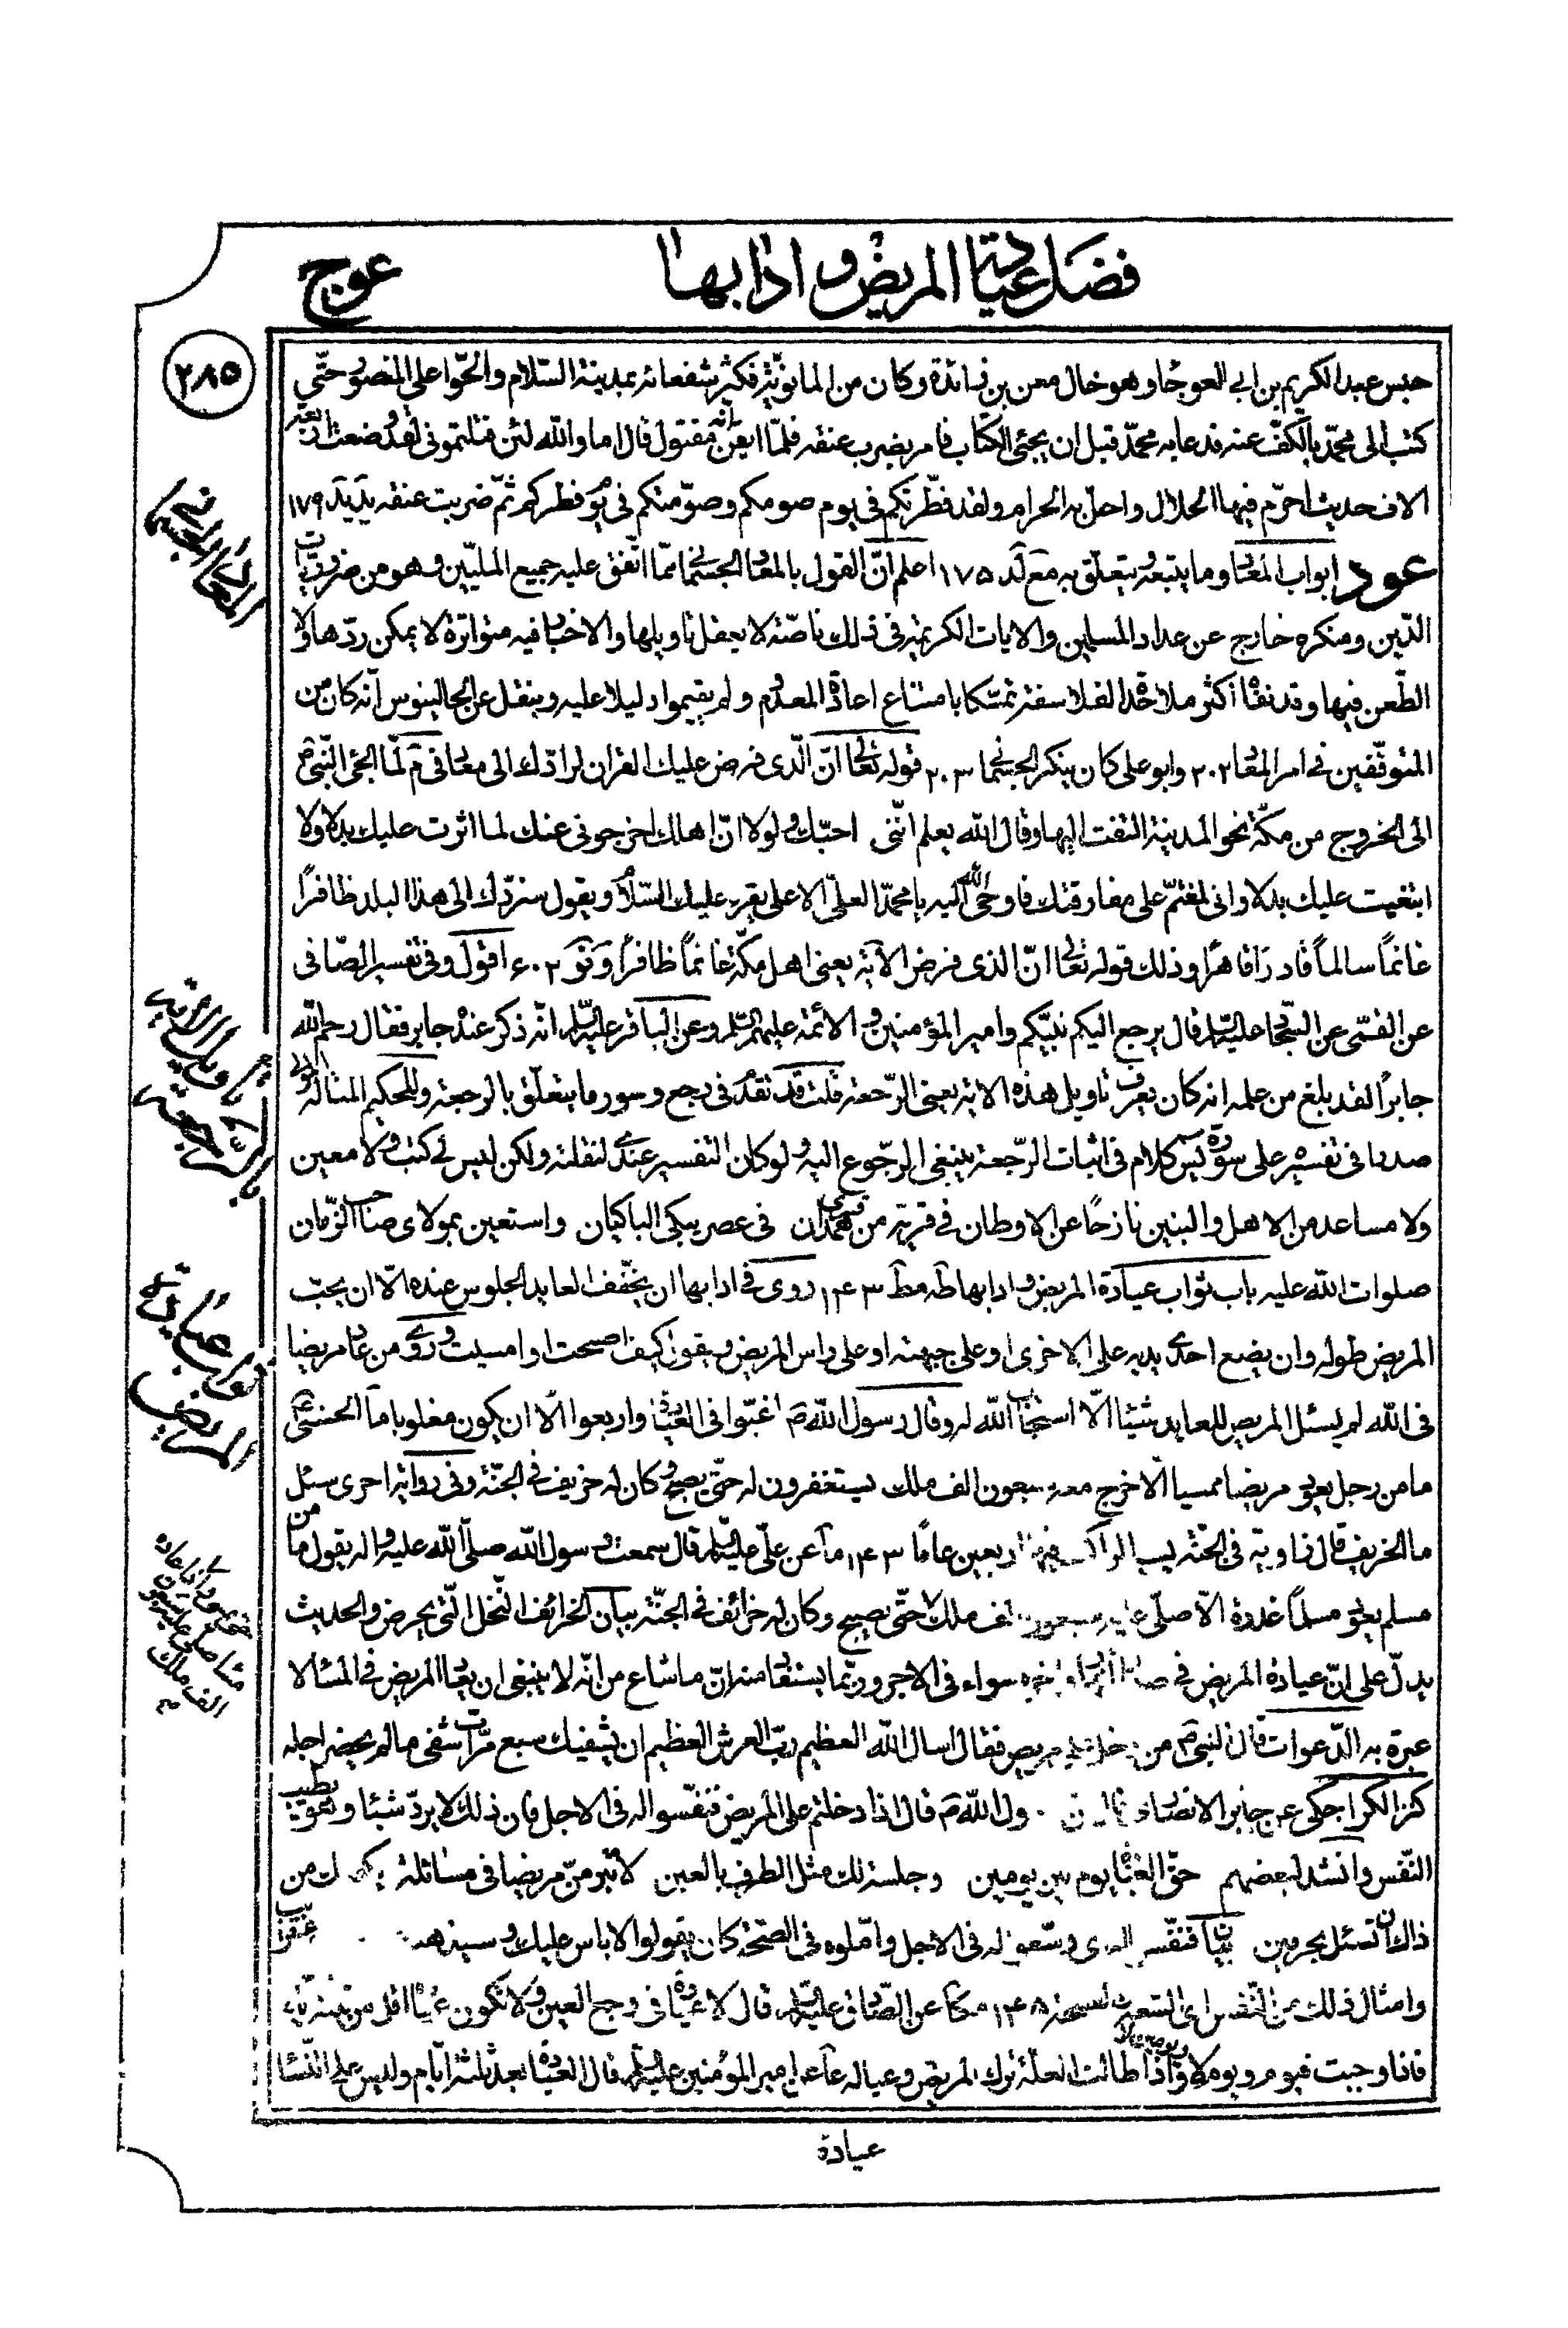 فضل عيادة المريض و ادابها
عوج
٢٨٥
حبس عبد الكريم بن ابي العوجا وهو خال معن بن زائدة وكان من المانويّة فكثر شفعائه بمدينة السّلام والحّوا على المنصور حتّى
كتب الى محمّد بالكفّ عنه فدعا به محمّد قبل ان يجئ الكتاب فامر بضرب عنقه فلمّا ايقن انّه مقتول قال اما والله لئن قتلتموني لقد وضعت اربعة
الاف حديث احرّم فيها الحلال واحلّ به الحرام ولقد فطّرتكم في يوم صومكم وصوّمتكم في يوم فطركم ثمّ ضربت عنقه يد يد ١٧٩
عود ابواب المعاد وما يتبعه ويتعلّق به مع لد ١٧٥ اعلم انّ القول بالمعاد الجسماني ممّا اتّفق عليه جميع الملّيين وهو من ضروريّات
الدّين ومنكره خارج عن عداد المسلمين والايات الكريمة في ذلك ناصّة لا يعقل تاويلها والاخبار فيه متواترة لا يمكن ردّها ولا
الطّعن فيها وقد نفاه اكثر ملاحدة الفلاسفة تمسّكا بامتناع اعادة المعدوم ولم يقيموا دليلا عليه وينقل عن الجالينوس انّه كان من
المتوقّفين في امر المعاد ٢٠٢ وابو علي كان ينكر الجسماني ٢٠٣ قوله تعالى انّ الّذى فرض عليك القران لرادّك الى معاد في م لمّا الجئ النّبيّ ص
الى الخروج من مكّة نحو المدينة التفت اليها وقال الله يعلم انّني احبّك ولولا انّ اهلك اخرجوني عنك لما اثرت عليك بلدا ولا
ابتغيت عليك بدلا واني لمغتمّ على مفارقتك فاوحى الله اليه يا محمّد العليّ الاعلى يقرء عليك السّلام ويقول سنردّك الى هذا البلد ظافرًا
غانمًا سالمًا قادرًا قاهرًا وذلك قوله تعالى انّ الذى فرض الاية يعني اهل مكّة غانمًا ظافرًا و نو ٦٠٢ اقول وفي تفسير الصّافي
عن القمّي عن السّجّاد عليه السّلم قال يرجع اليكم نبيّكم وامير المؤمنين والائمة عليهم السّلم وعن الباقر عليه السّلم انّه ذكر عنده جابر فقال رحم الله
جابرًا لقد بلغ من علمه انه كان يعرف تاويل هذه الاية يعني الرّجعة قلت قد تقدّم في رجع وسور ما يتعلّق بالرجعة وللحكيم المتاله المولى
صدرا في تفسيره على سورة يس كلام في اثبات الرّجعة ينبغي الرجوع اليه ولو كان التفسير عندي لنقلته ولكن ليس لي كتب ولا معين
ولا مساعد من الاهل والبنين نازحًا عن الاوطان في قرية من قرى همدان في عصر يبكي الباكيان واستعين بمولاى صاحب الزّمان
صلوات الله عليه باب ثواب عيادة المريض وادابها طه مط ١٤٣ روى في ادابها ان يخفّف العايد الجلوس عنده الّا ان يحبّ
المريض طوله وان يضع احدى يديه على الاخرى او على جبهته او على راس المريض ويقول كيف اصبحت او امسيت وروى من عاد مريضا
في الله لم يسئل المريض للعايد شيئا الّا استجاب الله له وقال رسول الله ص اغبّوا في العيادة واربعوا الّا ان يكون مغلوبا ما الحسن ع
ما من رجل يعود مريضا ممسيا الّا خرج معه سبعون الف ملك يستغفرون له حتّى يصبح وكان له خريف في الجنّة وفي رواية اخرى سئل
ما الخريف قال زاوية في الجنّة يسير الراكب فيها اربعين عاما ١٤٣ ما عن عليّ عليه السّلم قال سمعت رسول الله صلّى الله عليه واله يقول ما من
مسلم يعود مسلمًا غدوة الّا صلّى عليه سبعون الف ملك حتّى يصبح وكان له خرائف في الجنّة بيان الخرائف النّخل الّتي يحرص والحديث
يدلّ على انّ عيادة المريض في صدر النهار واخره سواء في الاجر وربّما يستفاد منه انّ ما شاع من انّه لا ينبغي ان يعاد المريض في المساء لا
عبرة به الدّعوات قال النبي ص من دخل على مريض فقال اسال الله العظيم ربّ العرش العظيم ان يشفيك سبع مرّات شفى ما لم يحضر اجله
كنز الكراجكي عن جابر الانصاري رسول الله ص قال اذا دخلتم على المريض فنفّسوا له في الاجل فان ذلك لا يردّ شيئا وهو يطيب
النّفس وانشد لبعضهم حقّ العيادة يوم بين يومين وجلسة لك مثل الطرف بالعين لا تبرمنّ مريضا في مسائلة يكفيك من
ذاك ان تسئل بحرفين بيان فنفّسوا اى وسّعوا له في الاجل وامّلوه في الصّحّة كان يقولوا لا باس عليك وسيذهب عنك عن قريب
وامثال ذلك من النّفس اى السّعة والفسحة ١٤٥ مكا عن الصّادق عليه السّلم قال لا عيادة في وجع العين ولا تكون عيادة اقل من ثلثة ايّام
فاذا وجبت فيوم ويوم لا ويوم ويوم لا واذا طالت العلّة ترك المريض وعياله عا عن امير المؤمنين عليه السّلم قال العيادة بعد ثلثة ايّام وليس على النّساء
عيادة
المعاد الجسماني
تاويل الاية بالرّجعة
ثواب عيادة المريض
الف ملك